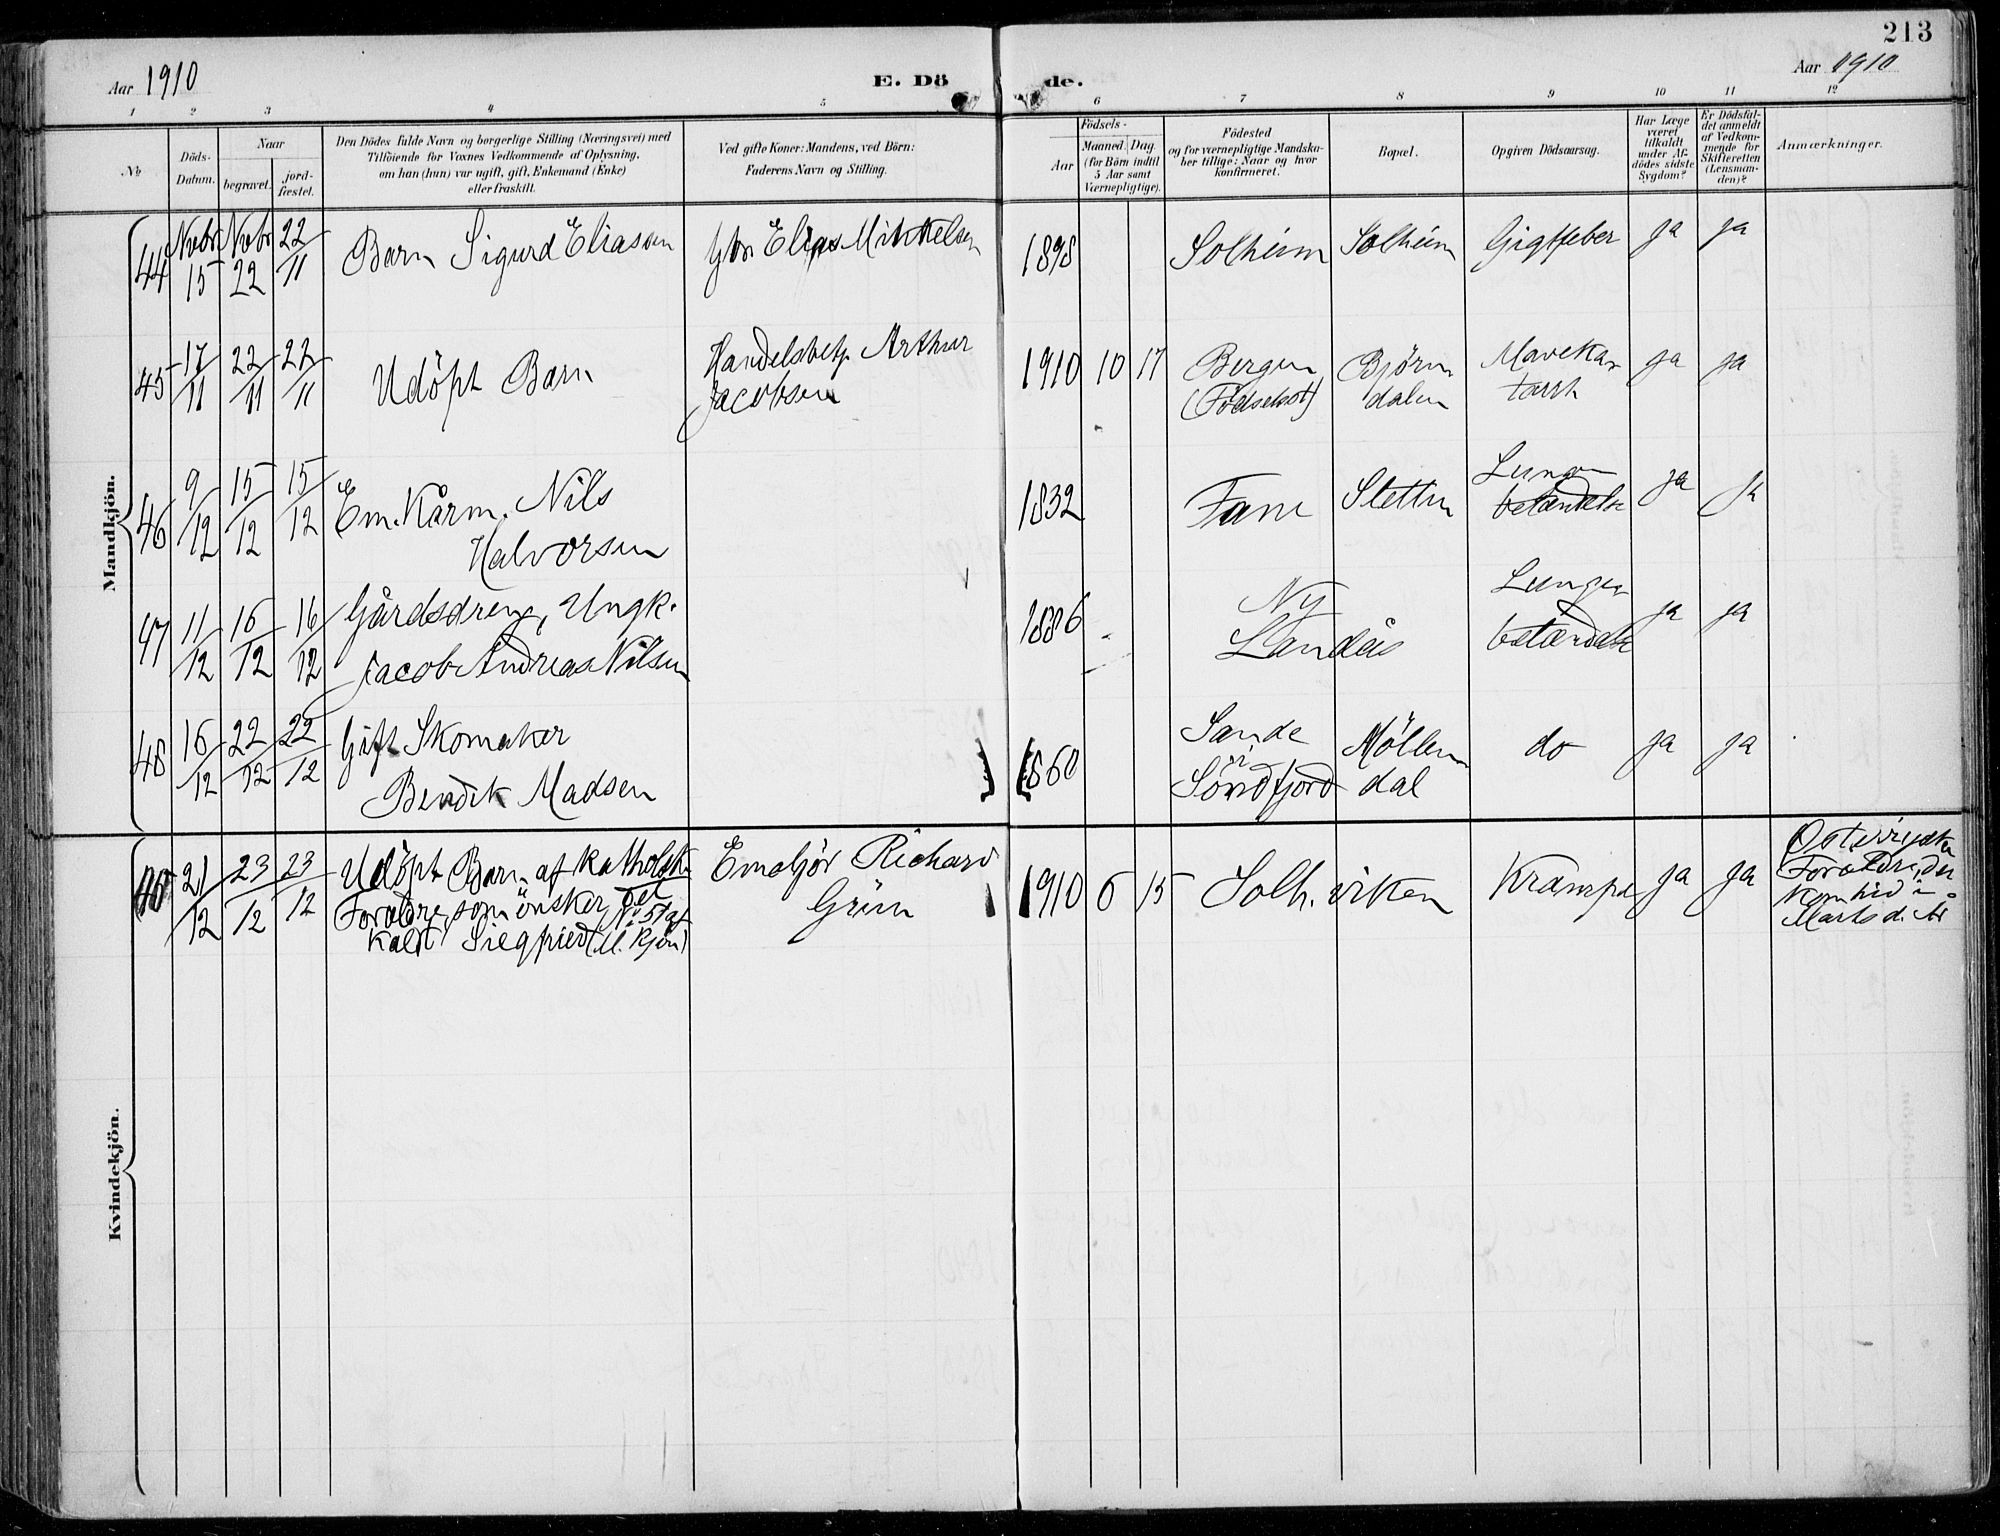 213
Aar 1910
E. Döde.
Aar 1910
1 2 3 4 5 6 7 8 9 10 11 12
No
Döds-Datum.
Naar
begravet.
jord-fæstet.
Den Dödes fulde Navn og borgerlige Stilling (Næringsvei) med
Tilföiende for Voxnes Vedkommende af Oplysning,
om han (hun) var ugift, gift, Enkemand (Enke)
eller fraskilt.
Ved gifte Koner: Mandens, ved Börn:
Faderens Navn og Stilling.
Födsels-
Aar
Maaned. Dag.
(for Börn indtil
5 Aar samt
Værnepligtige).
Födested
og for værnepligtige Mandska-
ber tillige: Naar og hvor
konfirmeret.
Bopæl.
Opgiven Dödsaarsag.
Har Læge
været
tilkaldt
under Af-
dödes sidste
Sygdom?
Er Dödsfal-
det anmeldt
af Vedkom-
mende for
Skifteretten
(Lensman-
den)?
Anmærkninger.
Mandkjön.
44 Nvbr 15 Nvbr 22 22/11 Barn Sigurd Eliassen Elias Mikkelsen 1898 Solheim Solheim Gigtfeber ja ja
45 17/11 22/11 22/11 Udöpt Barn Handelsbetj. Arthur
Jacobsen 1910 10 17 Bergen
(Födselsst) Björn
dalen Maveka
tarrh ja ja
46 9/12 15/12 15/12 Em. Kårm. Nils
Halvorsen 1832 Fane Stettn Lunge
betændelse ja ja
47 11/12 16/12 16/12 Gårdsdreng, Ungk.
Jacob Andreas Nilsen 1886 Ny
Landås Lunge
betændelse ja ja
48 16/12 22/12 22/12 Gift Skomaker
Bendik Madsen 1860 Sande
i
Söndfjord Möllen
dal do ja ja
Kvindekjön.
21/12 23/12 23/12 Udöpt Barn af katholske
Forældre, som önsker det
kaldt Siegfried (M. kjön)
No 51 af
Richard
Grün 1910 6 15 Solh. viken Krampe ja ja Österrigske
Forældre, der
kom hid i
Marts d. År